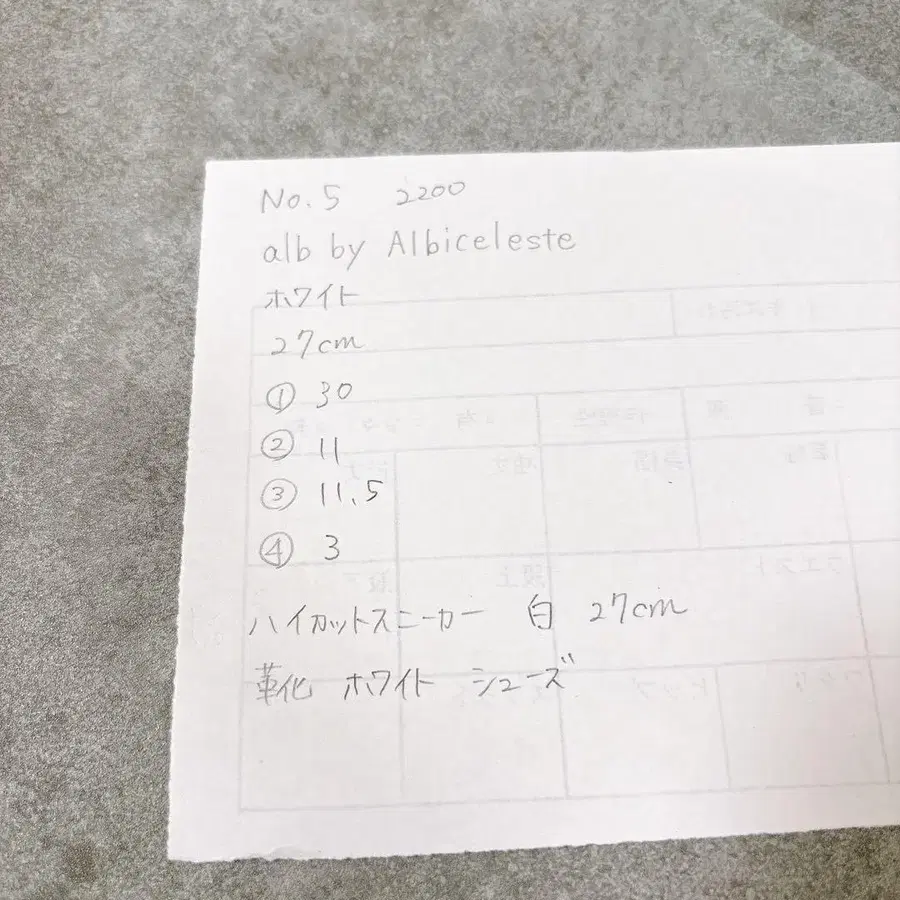 No.5 2200
alb by Albiceleste
ホワイト
27cm
① 30
② 11
③ 11.5
④ 3
ハイカットスニーカー 白 27cm
革化 ホワイト シューズ